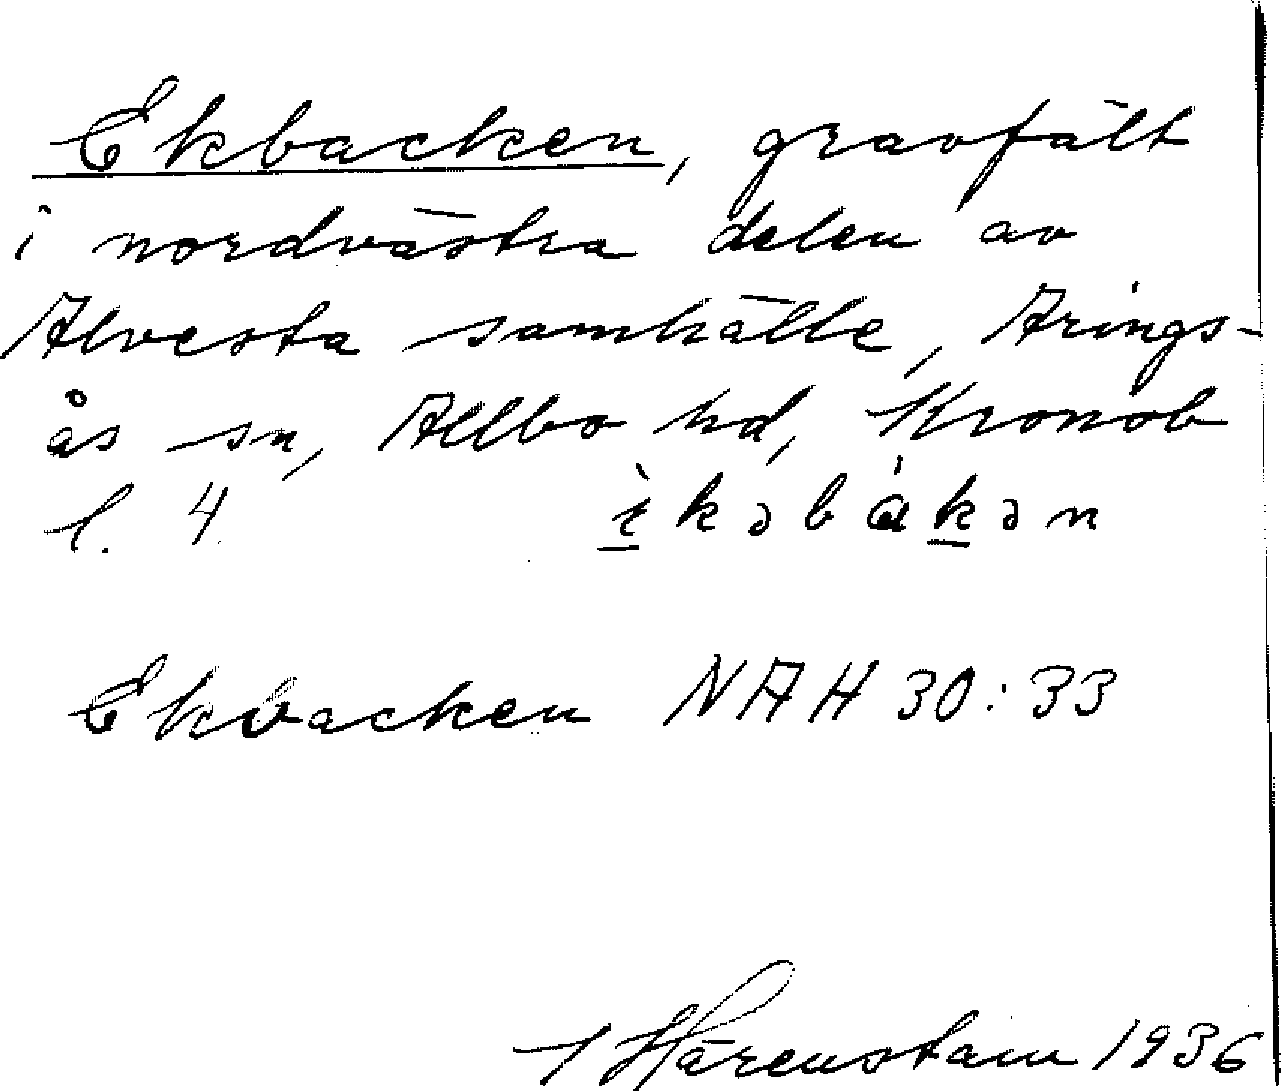 Ekbacken, gravfält
i nordvästra delen av
Alvesta samhälle, Arings-
ås sn, Allbo hd, Kronob
l. 4. ìkəbákən
Ekbacken NAH 30:33
Härenstam 1936